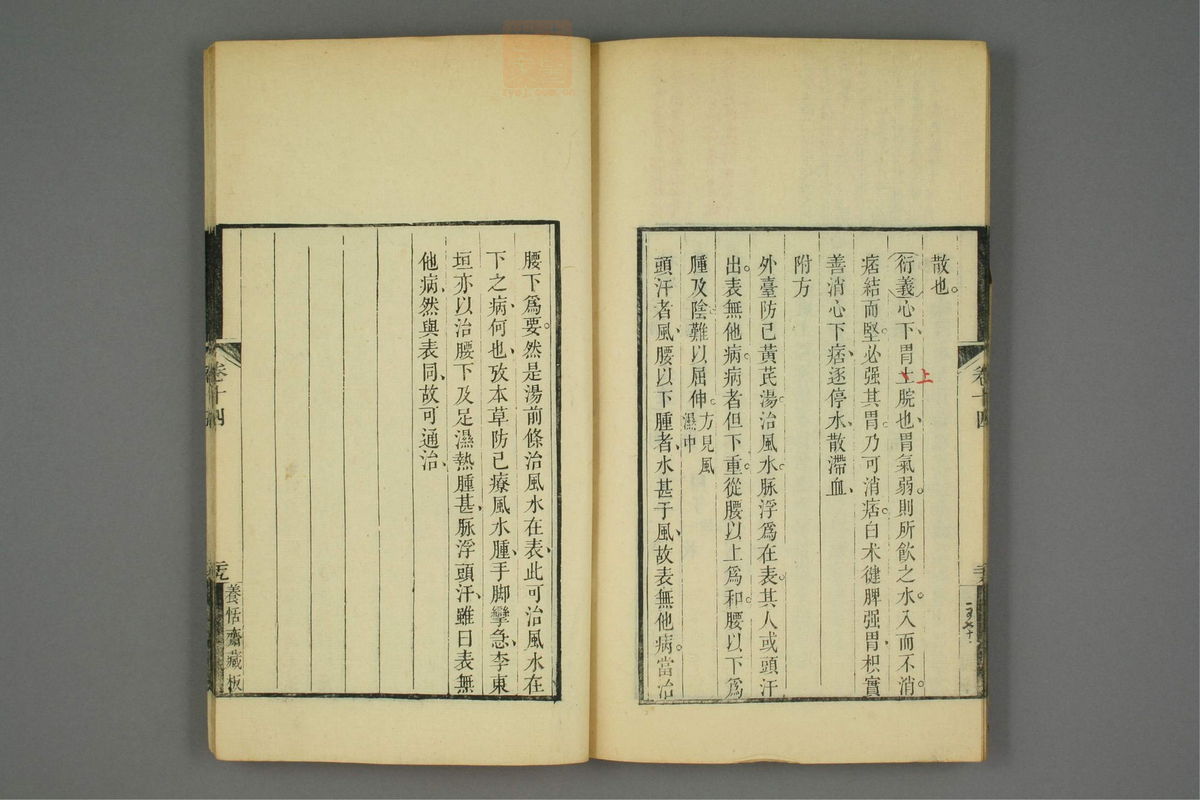 散也。
衍義心下胃土脘也、胃氣弱。則所飲之水。入而不消。
上
痞結而堅。必强其胃。乃可消痞。白朮健脾强胃、枳實
善消心下痞、逐停水、散滯血、
附方
外臺防己黃芪湯。治風水。脉浮爲在表。其人或頭汗
出。表無他病。病者但下重。從腰以上爲和。腰以下爲
腫及陰。難以屈伸。方見風
濕中
頭汗者風、腰以下腫者、水甚于風、故表無他病。當治
卷十四
腰下爲要。然是湯前條治風水在表、此可治風水在
下之病、何也、攷本草防己療風水腫、手脚攣急、李東
垣亦以治腰下及足濕熱腫甚、脉浮頭汗、雖曰表無
他病、然與表同、故可通治、
卷十四
養恬齋藏板